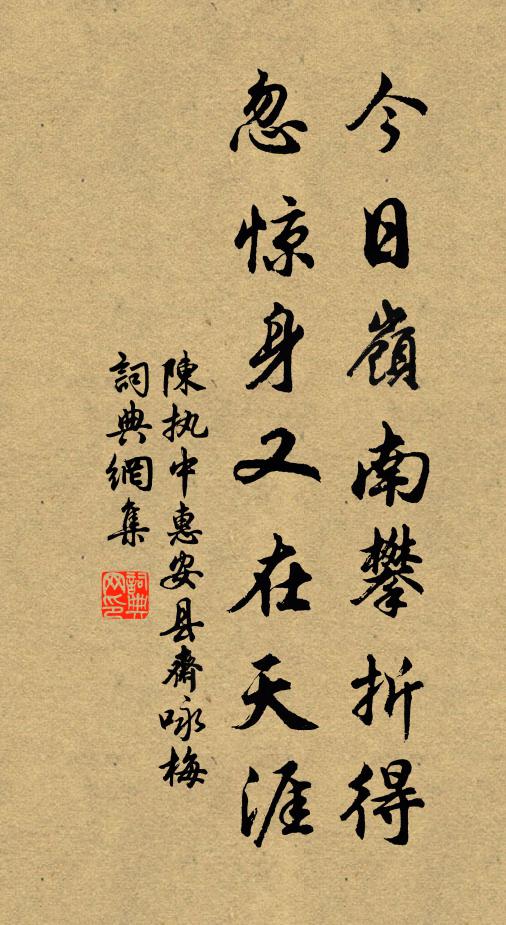 今日嶺南攀折得
忽惊身又在天涯
陳执中惠安县齋咏梅
詞典網集
詞典网印